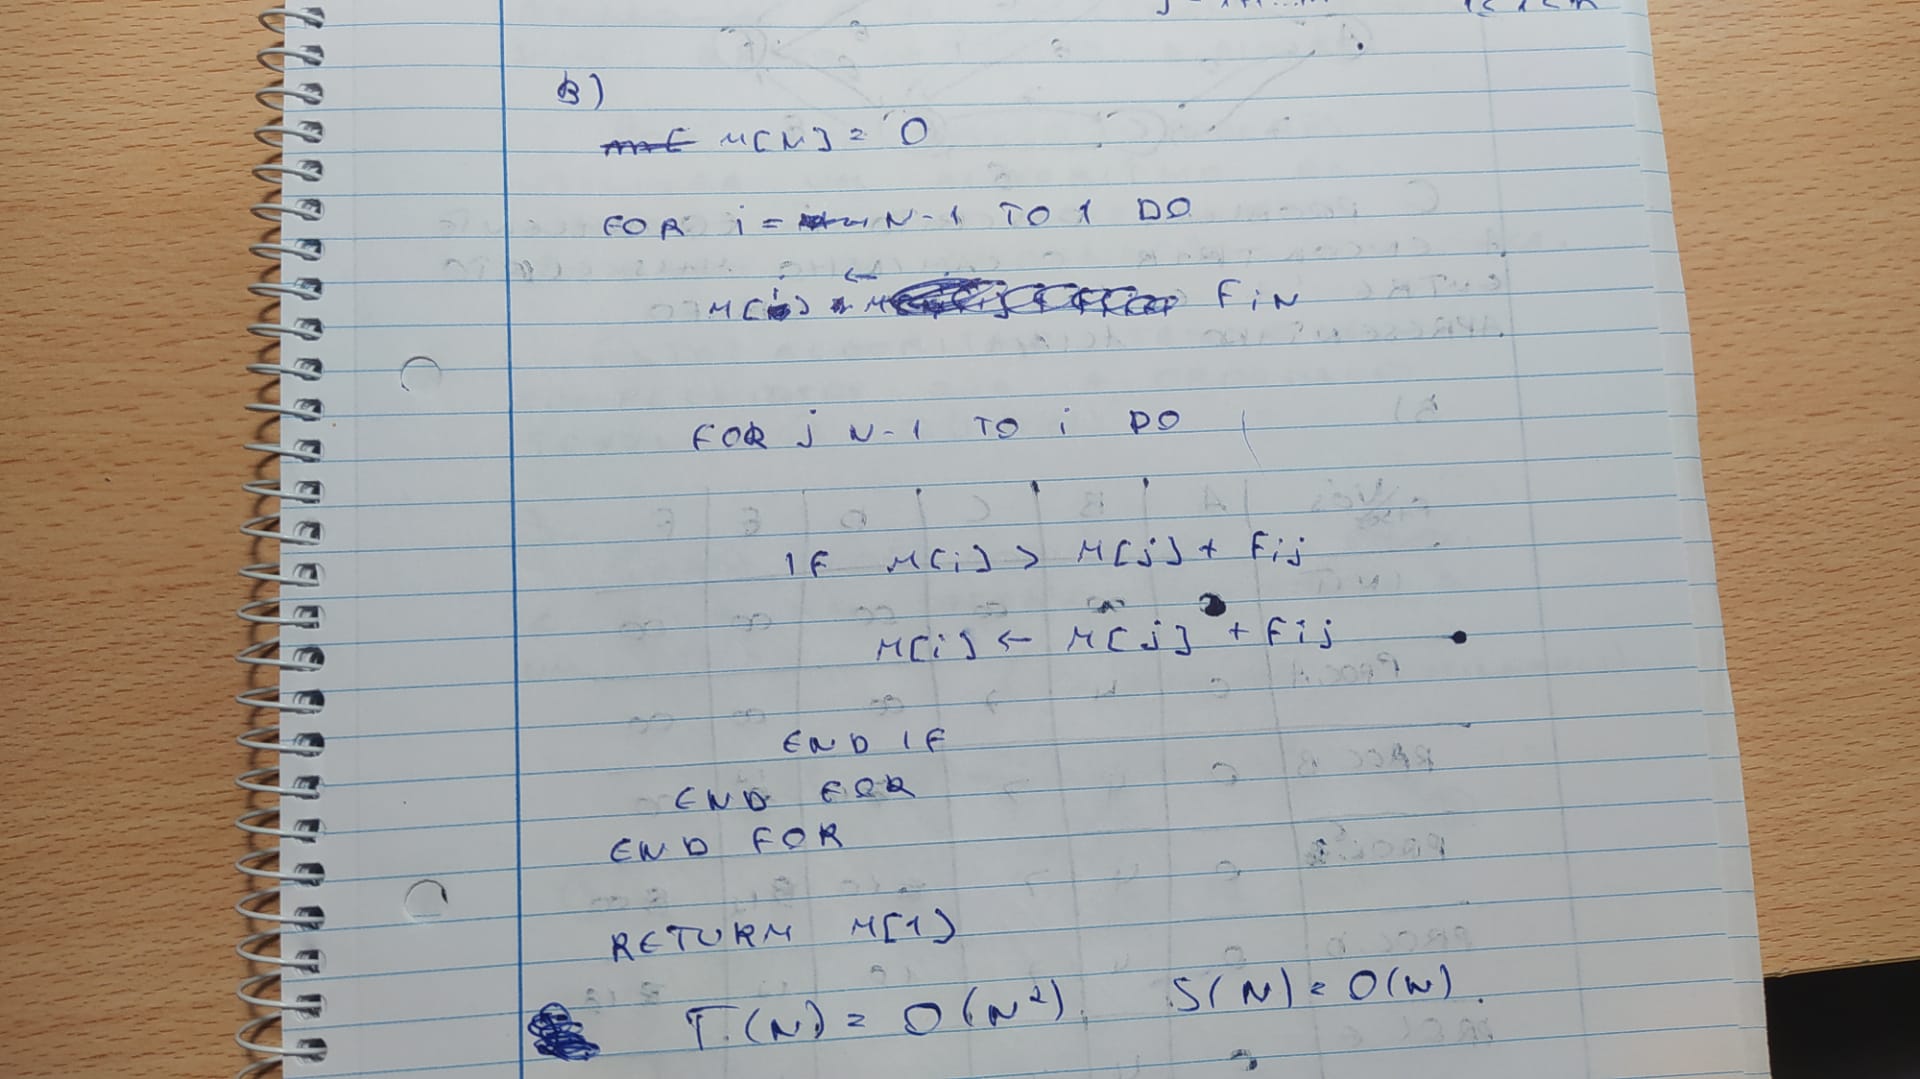 B)
M[N] = 0
FOR i = N-1 TO 1 DO
M[i] ← FiN
FOR j N-1 TO i DO
IF M[i] > M[j] + Fij
M[i] ← M[j] + Fij
END IF
END FOR
END FOR
RETURN M[1]
T(N) = O(N²) S(N) = O(N).